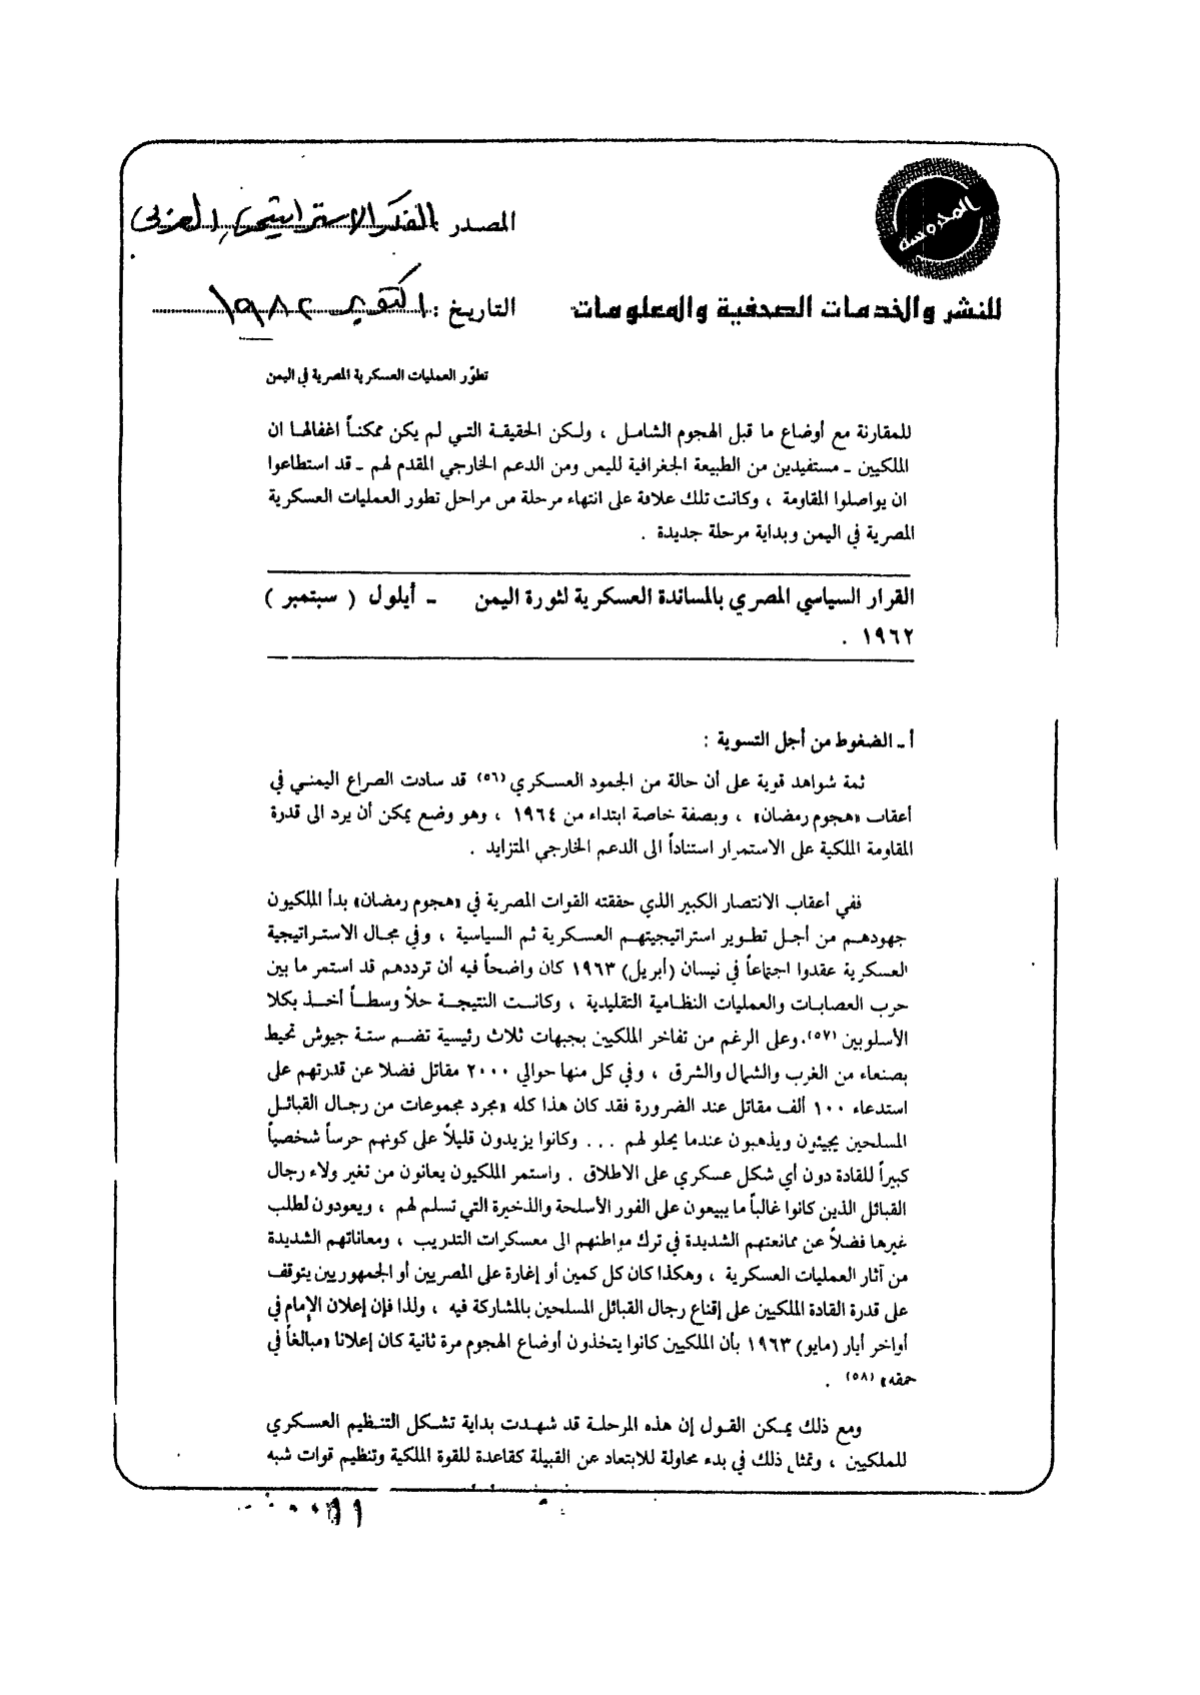 المحروسة
المصدر : الفكر الاستراتيجي العربي
للنشر والخدمات الصحفية والمعلومات
التاريخ : اكتوبر ١٩٨٢
تطوّر العمليات العسكرية المصرية في اليمن
للمقارنة مع أوضاع ما قبل الهجوم الشامل ، ولكن الحقيقة التي لم يكن ممكناً اغفالها ان
الملكيين ـ مستفيدين من الطبيعة الجغرافية لليمن ومن الدعم الخارجي المقدم لهم ـ قد استطاعوا
ان يواصلوا المقاومة ، وكانت تلك علاقة على انتهاء مرحلة من مراحل تطور العمليات العسكرية
المصرية في اليمن وبداية مرحلة جديدة .
القرار السياسي المصري بالمساندة العسكرية لثورة اليمن ـ أيلول ( سبتمبر )
١٩٦٢ .
أ ـ الضغوط من أجل التسوية :
ثمة شواهد قوية على أن حالة من الجمود العسكري (٥٦) قد سادت الصراع اليمني في
أعقاب «هجوم رمضان» ، وبصفة خاصة ابتداء من ١٩٦٤ ، وهو وضع يمكن أن يرد الى قدرة
المقاومة الملكية على الاستمرار استناداً الى الدعم الخارجي المتزايد .
ففي أعقاب الانتصار الكبير الذي حققته القوات المصرية في «هجوم رمضان» بدأ الملكيون
جهودهم من أجل تطوير استراتيجيتهم العسكرية ثم السياسية ، وفي مجال الاستراتيجية
العسكرية عقدوا اجتماعاً في نيسان (أبريل) ١٩٦٣ كان واضحاً فيه أن ترددهم قد استمر ما بين
حرب العصابات والعمليات النظامية التقليدية ، وكانت النتيجة حلاً وسطاً أخذ بكلا
الأسلوبين (٥٧). وعلى الرغم من تفاخر الملكيين بجبهات ثلاث رئيسية تضم ستة جيوش تحيط
بصنعاء من الغرب والشمال والشرق ، وفي كل منها حوالي ٢٠٠٠ مقاتل فضلا عن قدرتهم على
استدعاء ١٠٠ ألف مقاتل عند الضرورة فقد كان هذا كله «مجرد مجموعات من رجال القبائل
المسلحين يجيئون ويذهبون عندما يحلو لهم ... وكانوا يزيدون قليلاً على كونهم حرساً شخصياً
كبيراً للقادة دون أي شكل عسكري على الاطلاق . واستمر الملكيون يعانون من تغير ولاء رجال
القبائل الذين كانوا غالباً ما يبيعون على الفور الأسلحة والذخيرة التي تسلم لهم ، ويعودون لطلب
غيرها فضلاً عن ممانعتهم الشديدة في ترك مواطنهم الى معسكرات التدريب ، ومعاناتهم الشديدة
من آثار العمليات العسكرية ، وهكذا كان كل كمين أو إغارة على المصريين أو الجمهوريين يتوقف
على قدرة القادة الملكيين على إقناع رجال القبائل المسلحين بالمشاركة فيه ، ولذا فإن إعلان الإمام في
أواخر أيار (مايو) ١٩٦٣ بأن الملكيين كانوا يتخذون أوضاع الهجوم مرة ثانية كان إعلانا «مبالغاً في
حمقه» (٥٨) .
ومع ذلك يمكن القول إن هذه المرحلة قد شهدت بداية تشكل التنظيم العسكري
للملكيين ، وتمثل ذلك في بدء محاولة للابتعاد عن القبيلة كقاعدة للقوة الملكية وتنظيم قوات شبه